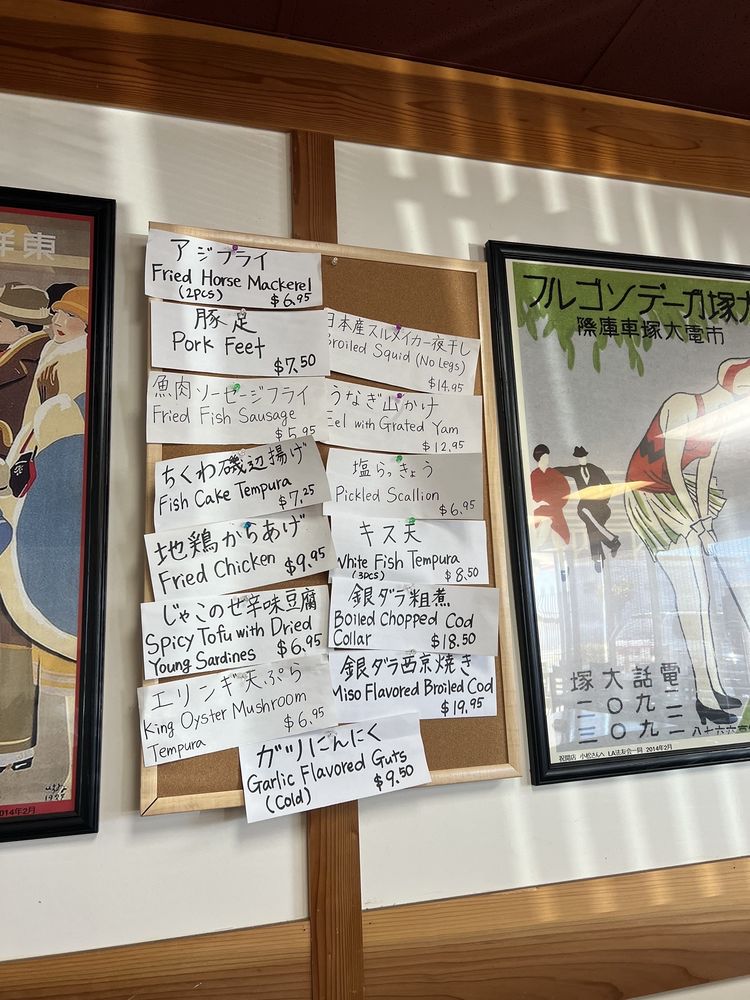 東
アジフライ
Fried Horse Mackerel
(2pcs) $6.95
豚足
Pork Feet
$7.50
魚肉ソーセージフライ
Fried Fish Sausage
$5.95
ちくわ磯辺揚げ
Fish Cake Tempura
$7.25
地鶏からあげ
Fried Chicken $9.95
じゃこのせ辛味豆腐
Spicy Tofu with Dried
Young Sardines $6.95
エリンギ天ぷら
King Oyster Mushroom
Tempura $6.95
日本産スルメイカ一夜干し
Broiled Squid (No Legs)
$14.95
うなぎ山かけ
Eel with Grated Yam
$12.95
塩らっきょう
Pickled Scallion
$6.95
キス天
White Fish Tempura
(3pcs) $8.50
銀ダラ粗煮
Boiled Chopped Cod
Collar $18.50
銀ダラ西京焼き
Miso Flavored Broiled Cod
$19.95
ガツにんにく
Garlic Flavored Guts
(Cold) $9.50
フルゴンデーガ塚大
際庫車塚大電市
塚大話電
二〇九二
三〇九二
祝開店 小松さんへ LA法友会一同 2014年2月
1927
2014年2月